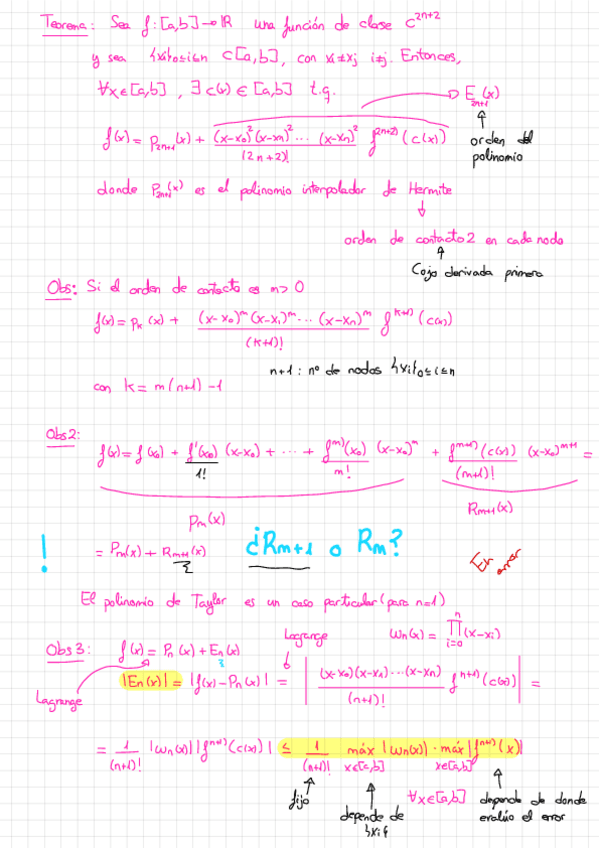 Teorema: Sea f: [a,b] → ℝ una función de clase C^{2n+2}
y sea {xi}0≤i≤n ⊂ [a,b], con xi≠xj i≠j. Entonces,
∀x∈[a,b], ∃ c(x) ∈ [a,b] t.q.
→ E_{2n+1}(x)
f(x) = P_{2n+1}(x) + (x-x0)^2 (x-x1)^2 ... (x-xn)^2 / (2n+2)! f^{(2n+2)}(c(x))
orden del polinomio
donde P_{2n+1}(x) es el polinomio interpolador de Hermite
↓
orden de contacto 2 en cada nodo
↑
Cojo derivada primera
Obs: Si el orden de contacto es m > 0
f(x) = p_k(x) + (x-x0)^m (x-x1)^m ... (x-xn)^m / (k+1)! f^{(k+1)}(c(x))
n+1 : nº de nodos {xi}0≤i≤n
con k = m(n+1) -1
Obs2:
f(x) = f(x0) + f'(x0)/1! (x-x0) + ... + f^{m)}(x0)/m! (x-x0)^m + f^{m+1)}(c(x))/(m+1)! (x-x0)^{m+1} =
Pm(x)
R_{m+1}(x)
! = Pm(x) + R_{m+1}(x) ¿R_{m+1} o R_m?
error
El polinomio de Taylor es un caso particular (para n=1)
Obs 3: f(x) = Pn(x) + En(x) Lagrange ωn(x) = ∏_{i=0}^{n} (x-xi)
Lagrange |En(x)| = |f(x) - Pn(x)| = | (x-x0)(x-x1)...(x-xn) / (n+1)! f^{n+1)}(c(x)) | =
= 1/(n+1)! |ωn(x)| |f^{(n+1)}(c(x)) | ≤ 1/(n+1)! máx_{x∈[a,b]} |ωn(x)| · máx_{x∈[a,b]} |f^{n+1)}(x)|
fijo
depende de {xi}
∀x∈[a,b]
depende de donde evalúo el error